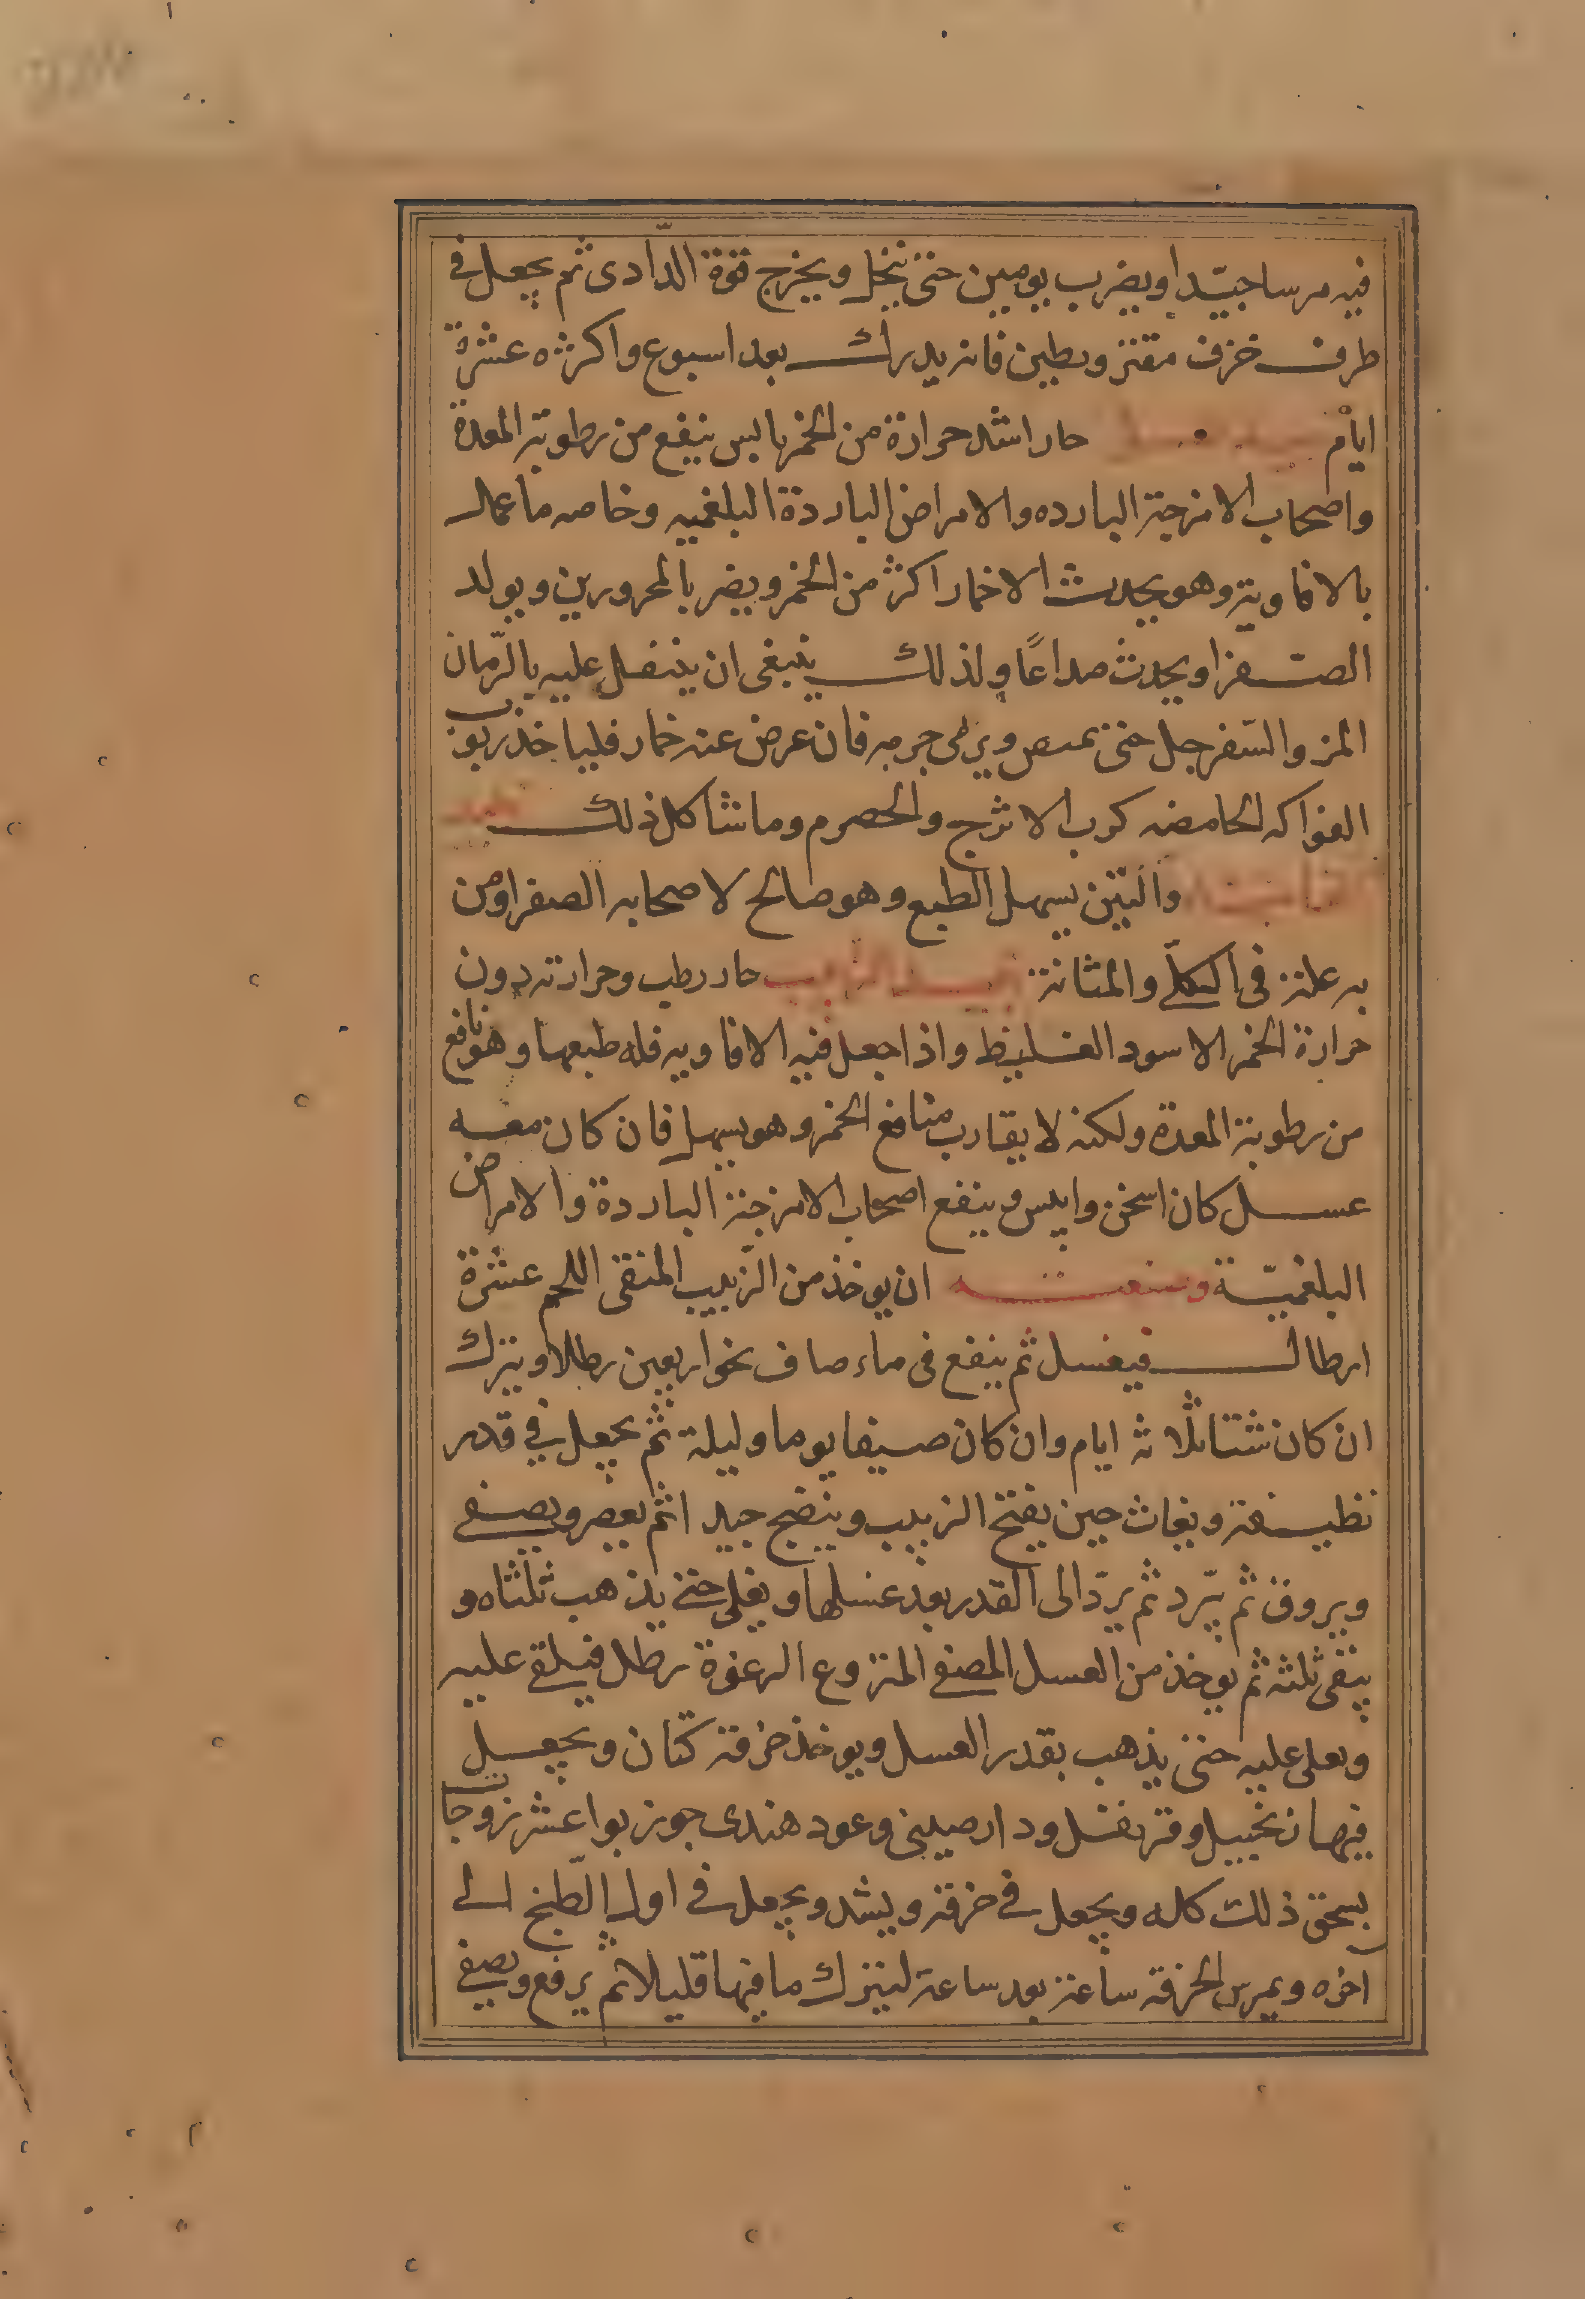 فيه مرسا جيّدا ويضرب يومين حتى ينحل ويخرج قوة الدّادى ثم يجعل فى
ظرف خزف مقير ويطين فانه يدرك بعد اسبوع واكثره عشرة
ايام حار اشد حرارة من الخمر يابس ينفع من رطوبة المعدة
واصحاب الامزجة البارده والامراض الباردة البلغميه وخاصه ما عمل
بالافاويه وهو يحدث الاخمار اكثر من الخمر ويضر بالمحرورين ويولد
الصّفرا ويحدث صداعًا ولذلك ينبغى ان يتنقل عليه بالرّمان
المز والسّفرجل حتى يمتص ويرمى جرمه فان عرض عنه خمار فلياخذ ربوب
الفواكه الحامضه كرب الاترج والحصرم وما شاكل ذلك
والتين يسهل الطبع وهو صالح لاصحابه الصفرا ومن
به علة فى الكلى والمثانة نبيذ الزبيب حار رطب وحرارته دون
حرارة الخمر الاسود الغليظ واذا جعل فيه الافاويه فله طبعها وهو نافع
من رطوبة المعدة ولكنه لا يقارب منافع الخمر وهو يسهل فان كان معه
عسل كان اسخن وايبس وينفع اصحاب الامزجة الباردة والامراض
البلغميّة وصنعته ان يوخذ من الزّبيب المنقى اللحم عشرة
ارطال فيغسل ثم ينقع فى ماء صاف نحو اربعين رطلا ويترك
ان كان شتا ثلاثه ايام وان كان صيفا يوما وليلة ثم يجعل فى قدر
نظيفة ويغاث حين يفتح الزبيب وينضج جيدا ثم يعصر ويصفى
ويروق ثم يبّرد ثم يردّ الى القدر بعد غسلها ويغلى حتى يذهب ثلثاه و
يبقى ثلثه ثم يوخذ من العسل المصفى المنزوع الرغوة رطل فيلقى عليه
ويغلى عليه حتى يذهب بقدر العسل ويوخذ خرقة كتان ويجعل
فيها زنجبيل وقرنفل ودارصينى وعود هندى جوز بوا عشر زوجات
يسحق ذلك كله ويجعل فى خرقة ويشد ويجعل فى اول الطبخ الى
اخره ويمرس الخرقه ساعة بعد ساعة لينزل ما فيها قليلا ثم يرفع ويصفى